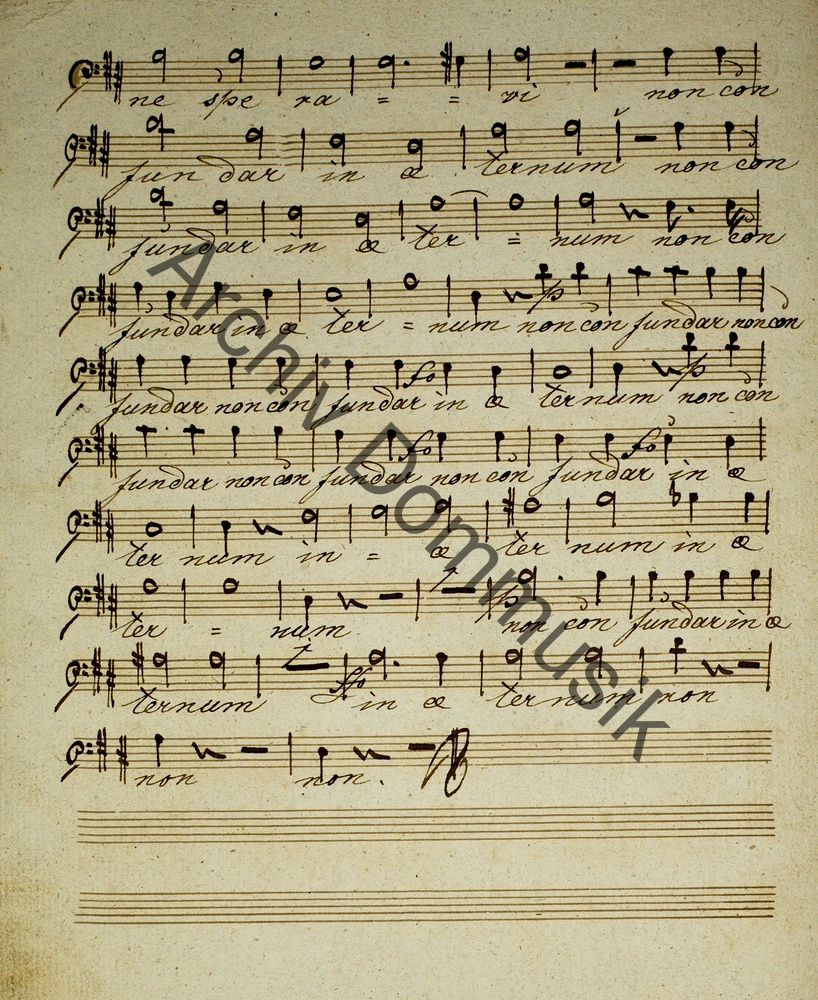 ne spe ra = = vi non con
fun dar in æ ternum non con
fundar in æ ter = num non con
fundar in æ ter = num non con fundar non con
fundar non con fundar in æ ternum non con
fundar non con fundar non con fundar in æ
ter num in = æ ter num in æ
ter = num non con fundar in æ
ternum in æ ternum non
non non.
Archiv Dommusik